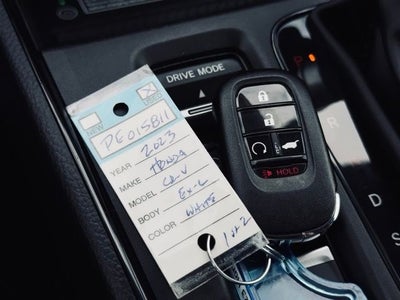 DRIVE MODE
NEW
USED
PE015811
YEAR 2023
MAKE HONDA
MODEL CR-V
BODY EX-L
COLOR WHITE
1 of 2
HOLD
P
R
D
S